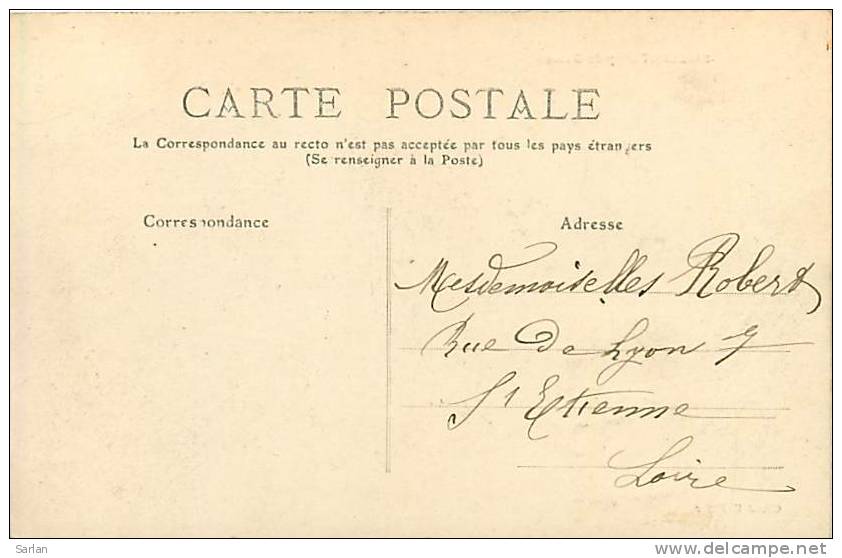 CARTE POSTALE
La Correspondance au recto n'est pas acceptée par tous les pays étrangers
(Se renseigner à la Poste)
Correspondance
Adresse
Mesdemoiselles Robert
Rue de Lyon 7
St Etienne
Loire
Sarlan
www.delcampe.net